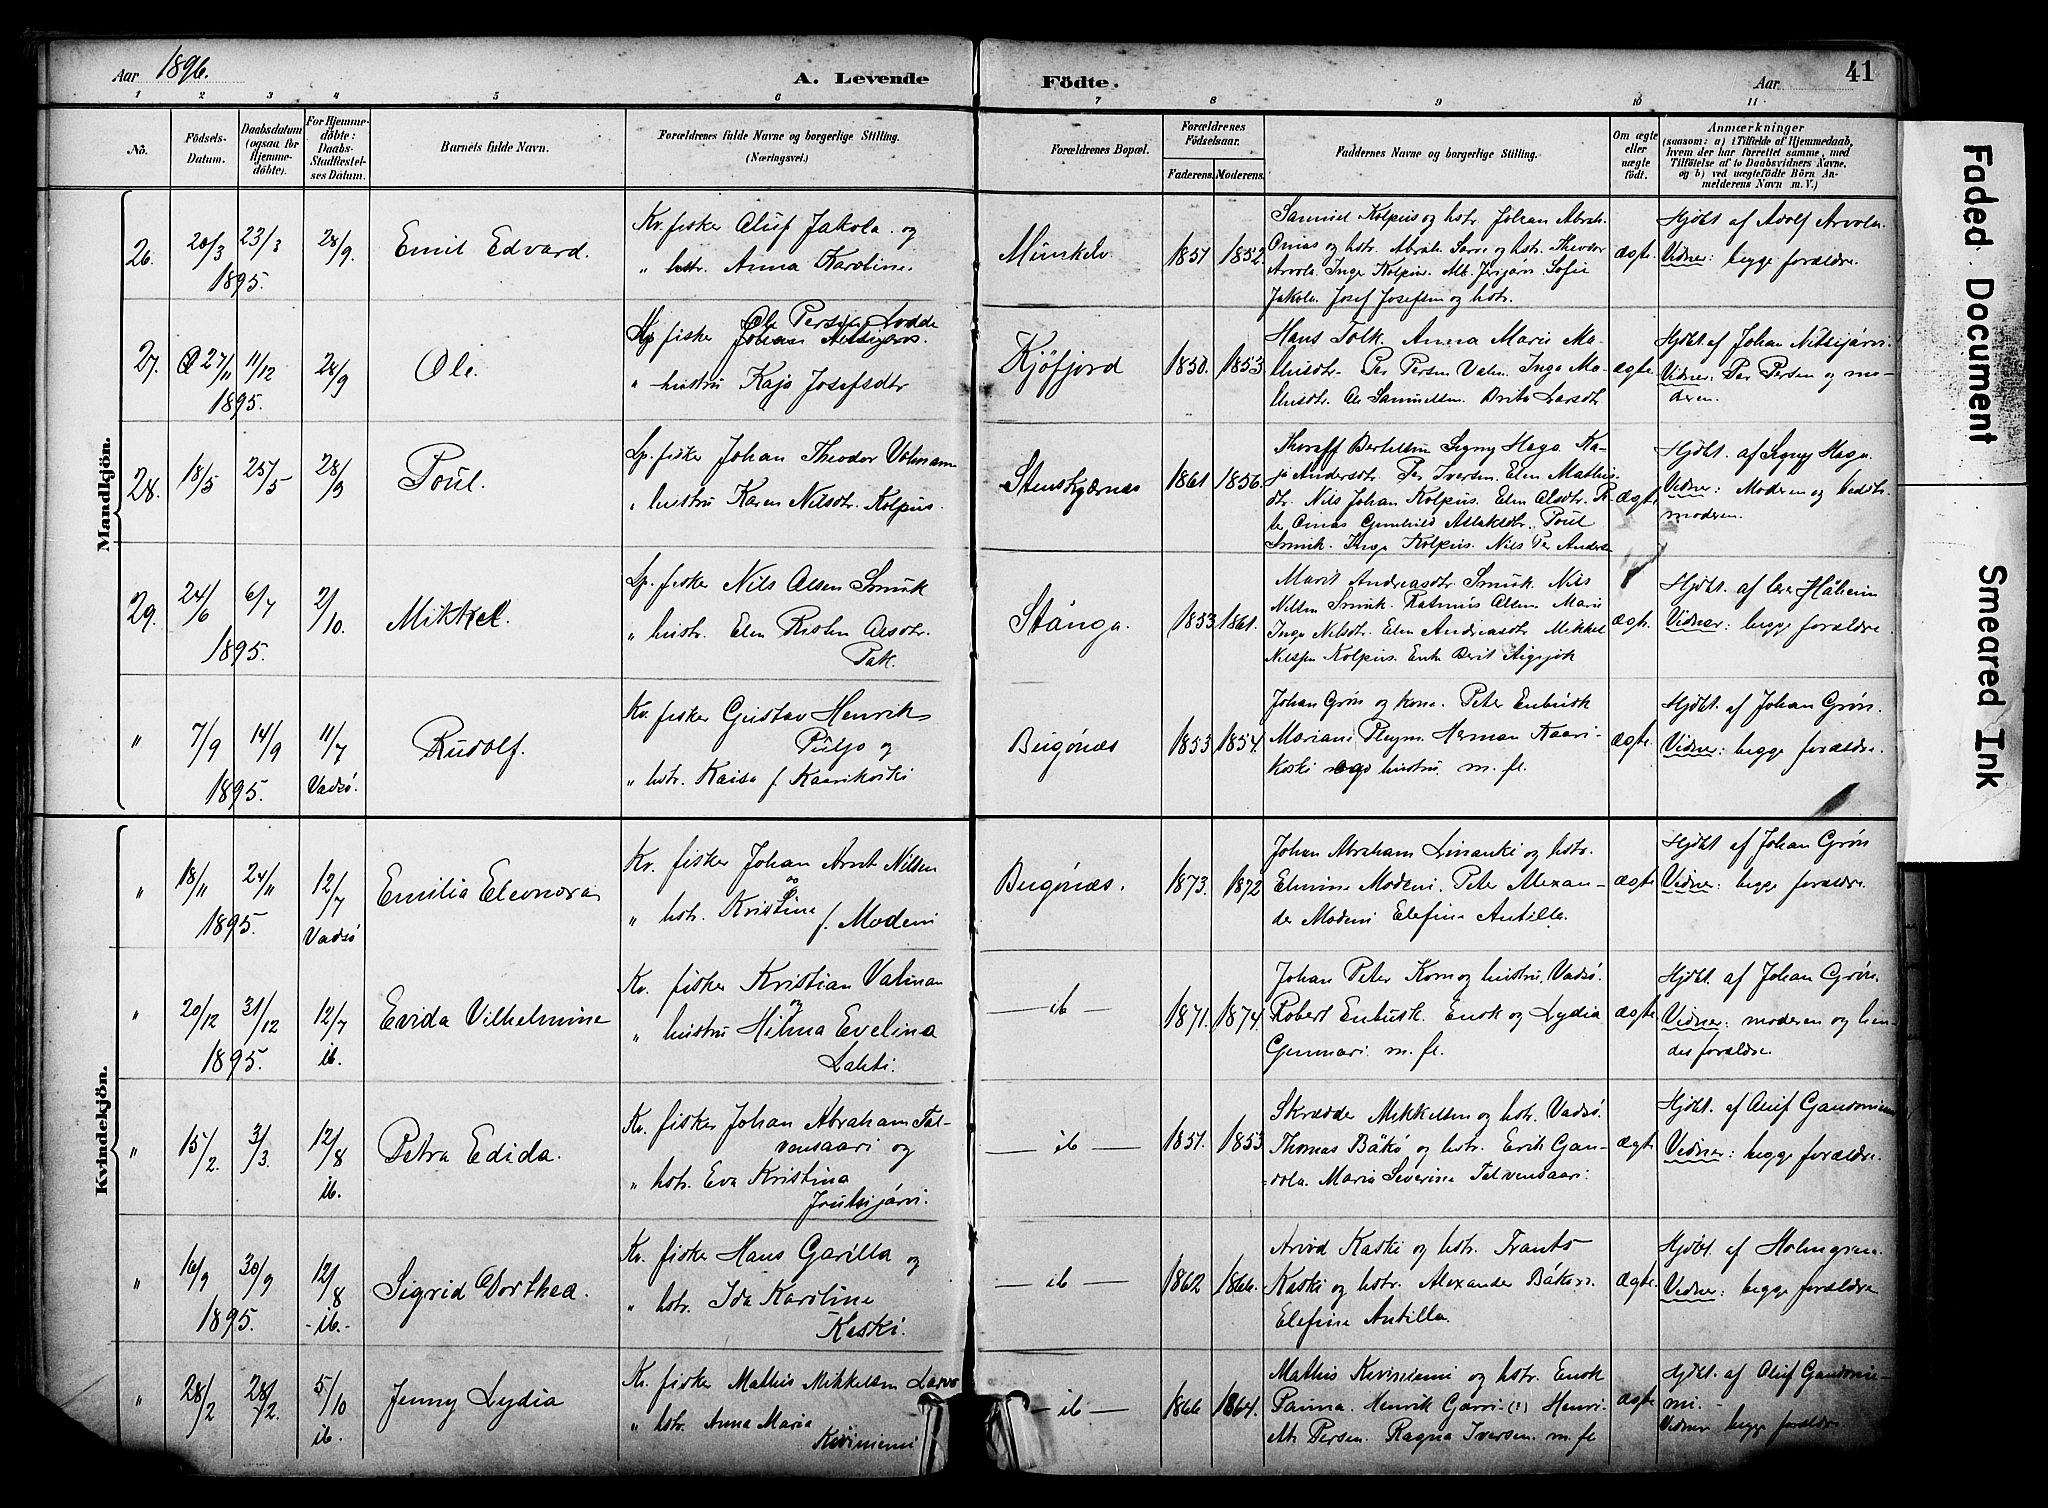 Aar 1896.
A. Levende
Födte.
Aar
41
1 2 3 4 5 6 7 8 9 10 11
No.
Födsels-Datum.
Daabsdatum (ogsaa for Hjemmedöbte).
For Hjemmedöbte: Daabs-Stadfæstelses Datum.
Barnets fulde Navn.
Forældrenes fulde Navne og borgerlige Stilling. (Næringsvei.)
Forældrenes Bopæl.
Forældrenes Födselsaar.
Faderens. Moderens.
Faddernes Navne og borgerlige Stilling.
Om ægte eller uægte födt.
Anmærkninger
(saasom: a) i Tilfælde af Hjemmedaab, hvem der har forrettet samme, med Tilföielse af to Daabsvidners Navne, og b) ved uægtefödte Börn Anmelderens Navn m. V.)
Mandkjön.
26. 20/3 23/3 1895. 28/9. Emil Edvard.
Kv. fisker Oluf Jakola og
" hstr. Anna Karoline.
Munkelv. 1851 1852.
Samuel Kolpus og hstr. Johan Abrah.
Omas og hstr. Abrah. Sarre og hstr. Theodor
Arvola. Inga Kolpus. Sofie
Jakola. Josef Josefsen og hstr.
ægte.
Hjdbt. af Adolf Arvola.
Vidner: begge forældre.
27. 27/11 11/12 1895. 28/9 Ole.
Lp. fisker Ole Persen
" hustru Kaja Josefsdtr
Kjøfjord 1850. 1853.
Hans Tolk. Anna Marie
Per Persen Inga
Ole Samuelsen. Brita Larsdtr
ægte.
Hjdbt. af Johan Nitsijärvi.
Vidner: Per Persen og mo-
deren.
28. 18/5 25/5 28/9 Poul.
Lp. fisker Johan Theodor Valmann
" hustru Karen Nilsdtr. Kolpus.
Stenskjærnæs 1861 1856.
Bertelsen Signy Haga. Ka-
ja Andersdtr. Per Iversen. Elen Mathis-
dtr. Nils Johan Kolpus. Elen Olsdtr.
Omas Gunhild Aslaksdtr. Poul
Smuk. Inga Kolpus. Nils Per Anders
ægte
Hjdbt. af Signy Haga.
Vidner: Moderen og Bedste-
moderen.
29. 24/6 6/7 1895. 2/10. Mikkel.
Lp. fisker Nils Olsen Smuk
" hustr. Elen Risten Olsdtr.
Pak.
Stånga. 1853 1861.
Marit Andreasdtr. Smuk. Nils
Nilsen Smuk. Rasmus Olsen Marie
Inga Nilsdtr. Elen Andreasdtr Mikkel
Nilsen Kolpus. Enke Berit
ægte.
Hjdbt. af lærer Håheim
Vidner: begge forældre.
" 7/9 14/9 1895. 11/7 Vadsö. Rudolf.
Kv. fisker Gustav Henrik
Puljo og
" hstr. Kaisa f. Kaarikoski
Bugönæs 1853 1854.
Johan Grön og kone. Peter Enbusk
Mariane Pleym. Herman Kaari-
koski og hustru m. fl.
ægte.
Hjdbt. af Johan Grön.
Vidner: begge forældre.
Kvindekjön.
" 18/11 24/11 1895. 12/7 Vadsö Emilia Eleonora
Kv. fisker Johan Arnt Nilsen
og
" hstr. Kristine f. Modeni
Bugönæs. 1873. 1872
Johan Abraham Linanki og hstr.
Elmine Modeni. Peter Alexan-
der Modeni Elefine Antilla.
ægte
Hjdbt af Johan Grön
Vidner: begge forældre.
" 20/12 31/12 1895. 12/7 ib. Evida Vilhelmine
Kv. fisker Kristian Valman
og
" hustru Hilma Evelina
Lahti.
— ib — 1871. 1874.
Johan Peter Korn og hustru, Vadsö.
Robert Enbusk. Enok og Lydia
m. fl.
ægte
Hjdbt. af Johan Grön.
Vidner: moderen og hen-
des forældre.
" 15/2. 3/3. 12/8 ib. Petra Edida.
Kv. fisker Johan Abraham Tal-
vensaari og
" hstr. Eva Kristina
Joutsijärvi.
— ib — 1851. 1853
Skrædder Mikkelsen og hstr. Vadsö.
Thomas Bäkö og hstr. Erik Gan-
Maria Severine Talvensaari.
ægte.
Hjdbt. af Oluf Gandoniemi
Vidner: begge forældre.
" 16/9 30/9 1895. 12/8 -ib.- Sigrid Dorthea.
Kv. fisker Hans Garilla og
" hstr. Ida Karoline
Kaski.
— ib — 1862 1866.
Arvid Kaski og hstr. Frants
Kaski og hstr. Alexander
Elefine Antilla.
ægte.
Hjdbt. af Holmgren.
Vidner: begge forældre
" 28/2 28/2. 5/10 ib. Jenny Lydia
Kv. fisker Mathis Mikkelsen
" hstr. Anna Maria
Kiviniemi
— ib — 1866 1864.
Mathis Kiviniemi og hstr. Enok
Panna. Henrik Garri (?) Henri-
Persen. Ragna Iversen. m. fl
ægte
Hjdbt. af Oluf Gandonie-
mi.
Vidner begge forældre
Faded Document
Smeared Ink